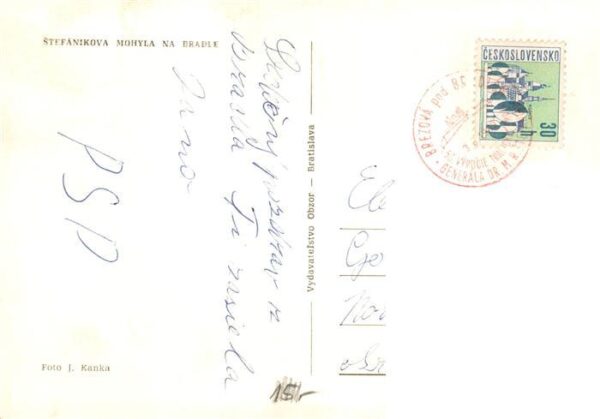 ŠTEFÁNIKOVA MOHYLA NA BRADLE
Srdečný pozdrav z
Bradla Ti zasiela
Jano
PSP
Foto J. Kanka
Vydavateľstvo Obzor — Bratislava
ČESKOSLOVENSKO
30
h
BREZOVÁ pod BR
VÝROČIE
GENERÁLA DR. M. R.
Ele
Nov
15,-